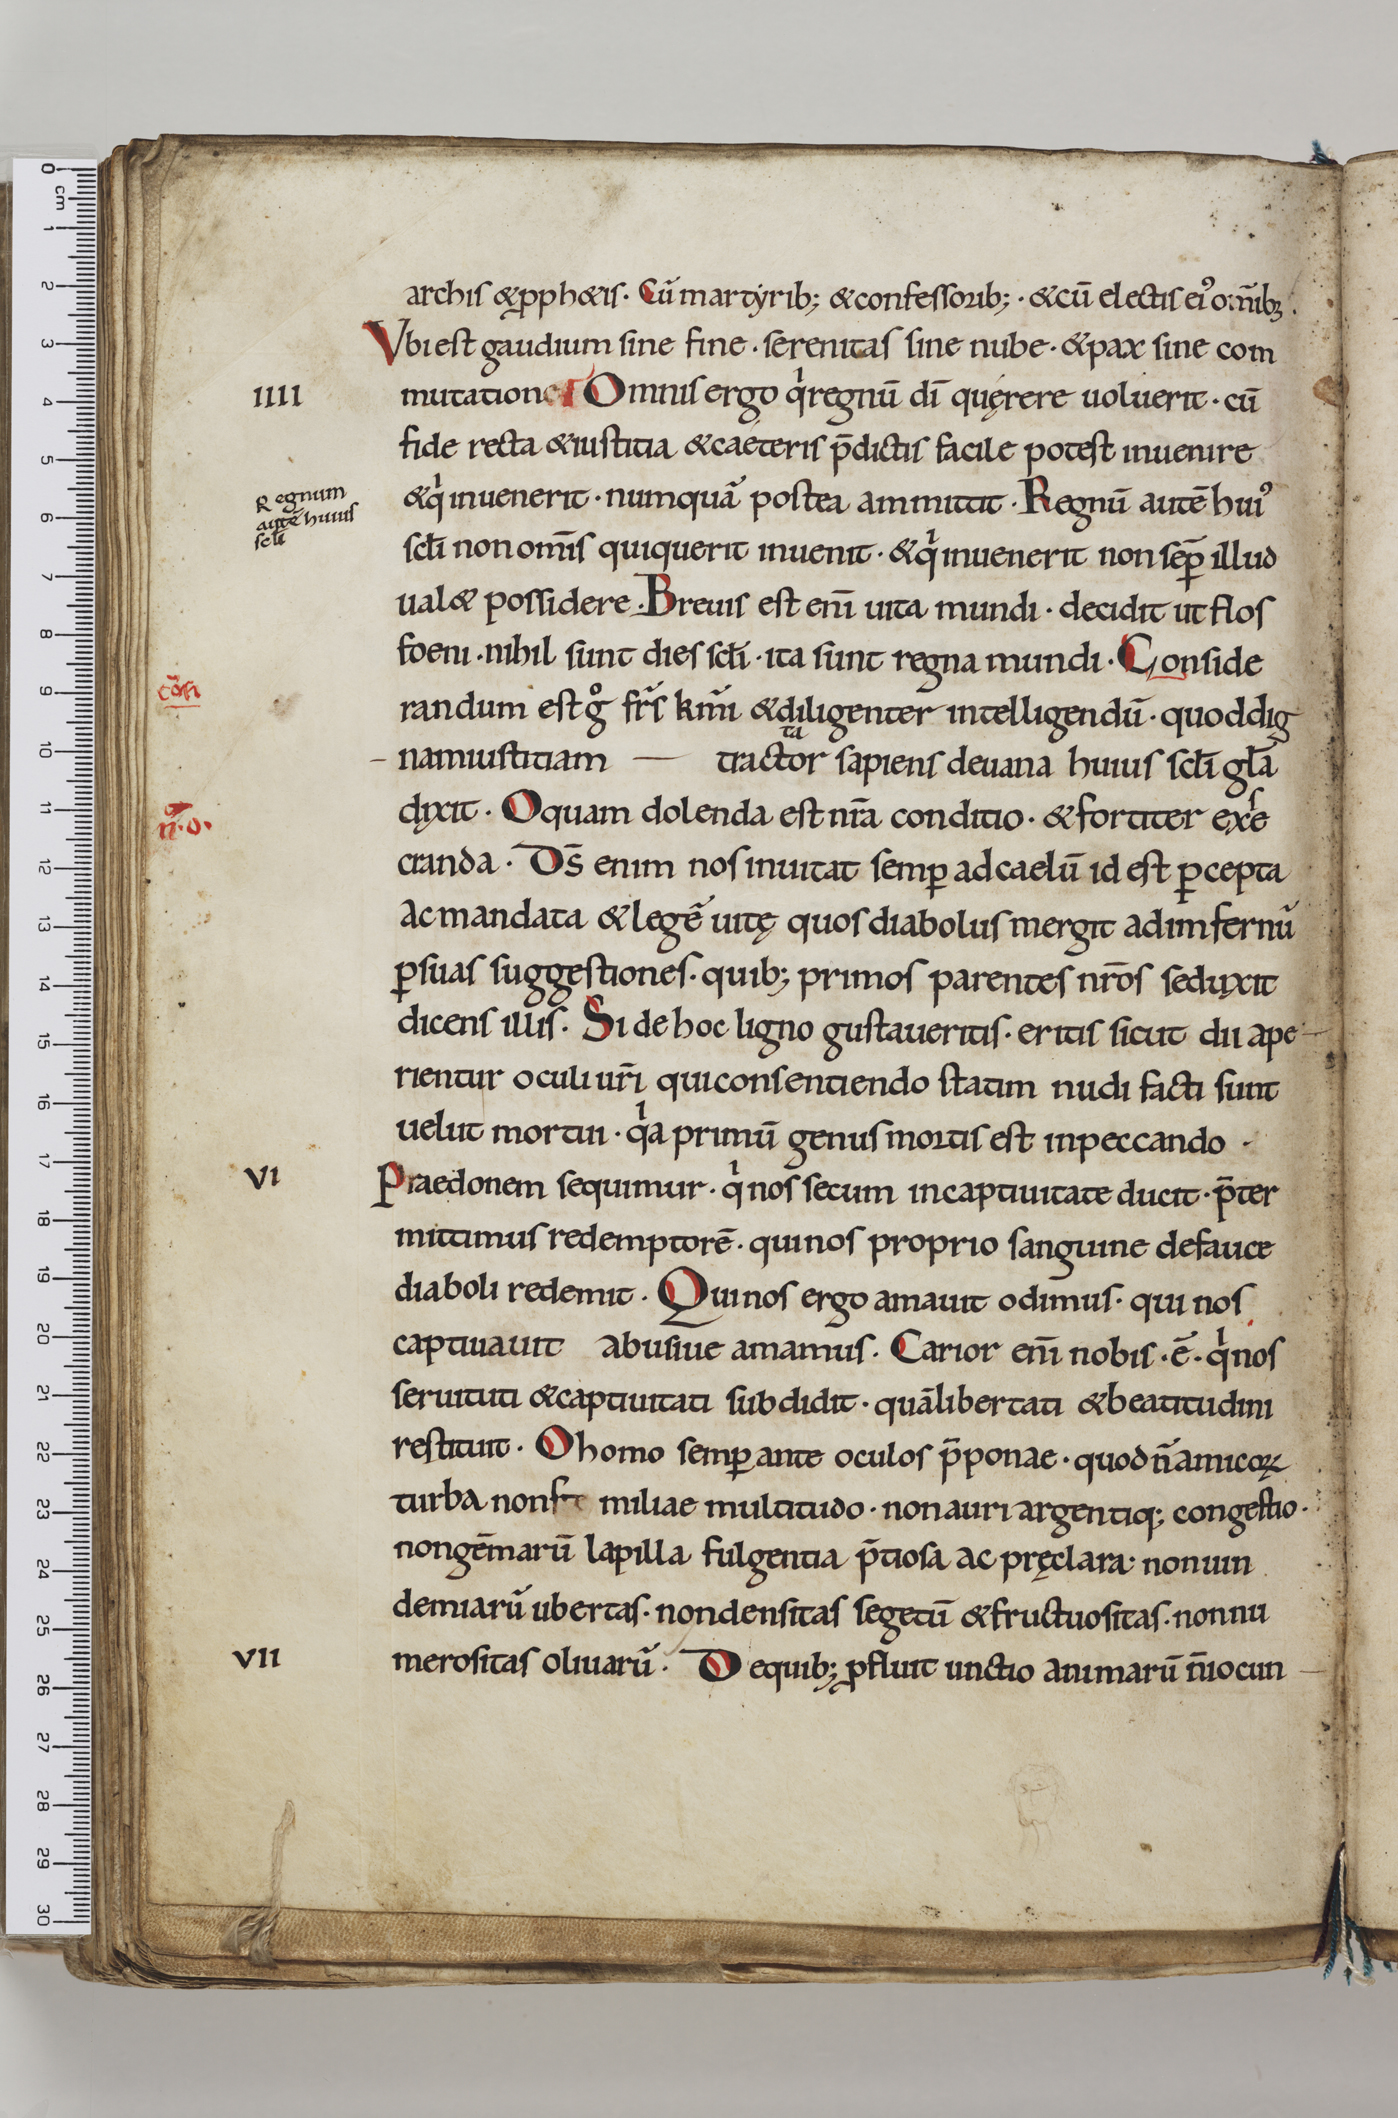 archis &ꝓph&is· Cū martyrib; &confessorib;· &cū electis ei᷒ om̄ib;.
Vbi est gaudium sine fine· serenitas sine nube· &pax sine com
IIII
mutatione Omnis ergo qͥ regnū dī quęrere uoluerit· cū
fide recta &iustitia &caeteris p̄dictis facile potest inuenire
Regnum
autē huius
scłi
&qͥ inuenerit· numquā postea ammittit· Regnū autē hui᷒
scłi non om̄s quiquerit inuenit· &qͥ inuenerit non sēꝑ illud
ual& possidere· Breuis est eni̅ uita mundi· decidit ut flos
foeni· nihil sunt dies scłi· ita sunt regna mundi· Conside
randum est gͦ fr̄s km̄i &diligenter intelligendū· quod dig
nam iustitiam — tractor sapiens deuana huius scłi gła
ta
dixit· O quam dolenda est nr̄a conditio· &fortiter exse
n̄·o·
cranda· Ds̄ enim nos inuitat semꝑ ad caelū id est ꝑcepta
ac mandata &legē uitę quos diabolus mergit ad imfernū
ꝑ suas suggestiones· quib; primos parentes nr̄os seduxit
dicens illis· Si de hoc ligno gustaueritis· eritis sicut dii ape
rientur oculi ur̄i qui consentiendo statim nudi facti sunt
uelut mortui· qͥa primū genus mortis est inpeccando·
VI
Praedonem sequimur· qͥ nos secum in captiuitate ducit· p̄ter
mittimus redemptorē· qui nos proprio sanguine defauce
diaboli redemit· Qui nos ergo amauit odimus· qui nos
captiuauit abusiue amamus· Carior eni̅ nobis· ē· qͥ nos
seruituti &captiuitati subdidit· quā libertati &beatitudini
restituit· O homo semꝑ ante oculos p̄ponae· quod n̄ amicoꝝ
turba non miliae multitudo· non auri argentiq; congestio·
non gēmarū lapilla fulgentia p̄tiosa ac pręclara· non uin
demiarū ubertas· non densitas segetū &fructuositas· non nu
VII
merositas oliuarū· De quib; ꝓfluit unctio animarū n̄ iocun